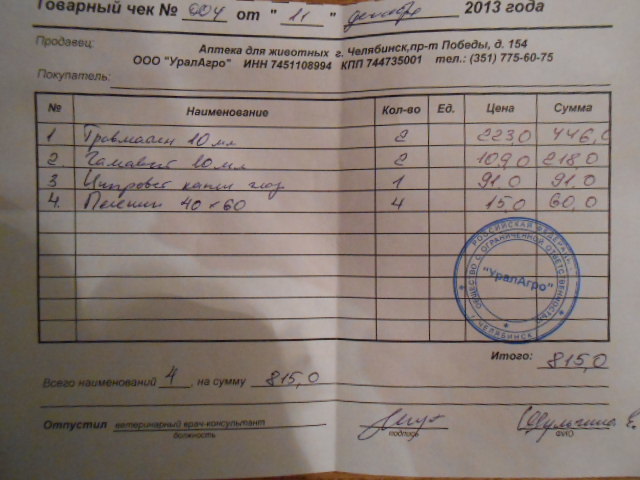 Товарный чек № 004 от "11" декабря 2013 года
Продавец: Аптека для животных г. Челябинск,пр-т Победы, д. 154
ООО "УралАгро" ИНН 7451108994 КПП 744735001 тел.: (351) 775-60-75
Покупатель:
№ Наименование Кол-во Ед. Цена Сумма
1 Травматин 10 мл 2 223,0 446,0
2 Гамавит 10 мл 2 109,0 218,0
3 Ципровет капли глаз 1 91,0 91,0
4. Пеленки 40×60 4 15,0 60,0
РОССИЙСКАЯ ФЕДЕРАЦИЯ
ОБЩЕСТВО С ОГРАНИЧЕННОЙ ОТВЕТСТВЕННОСТЬЮ
"УралАгро"
г. ЧЕЛЯБИНСК
Итого: 815,0
Всего наименований 4, на сумму 815,0
Отпустил ветеринарный врач-консультант
должность подпись ФИО